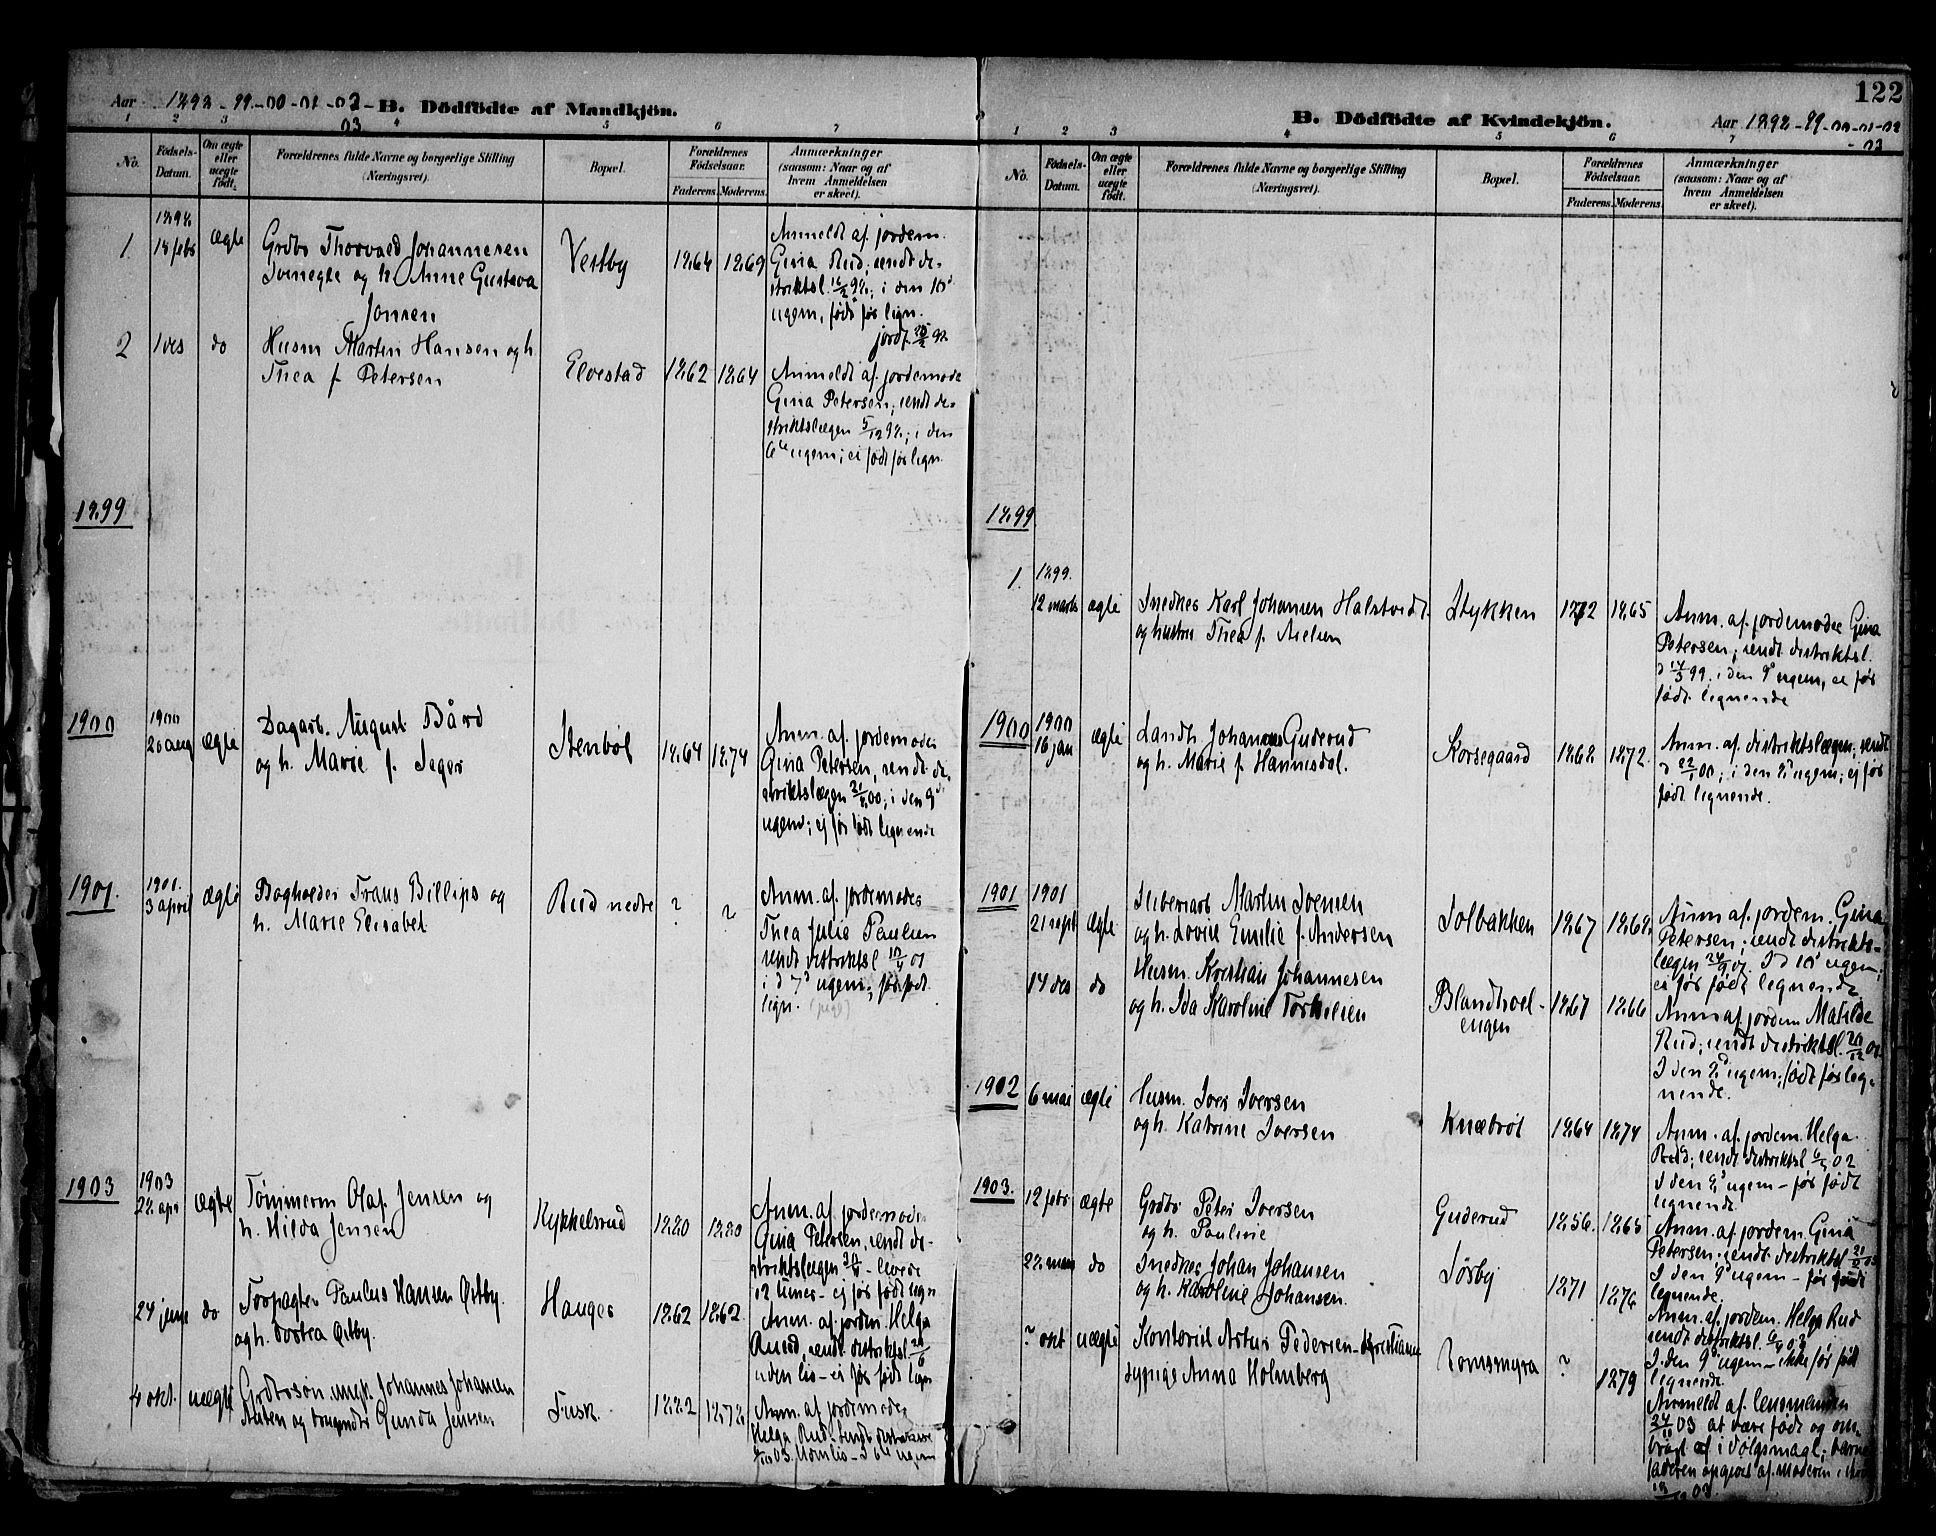 122
Aar 1898-99-00-01-02-
03
B. Dödfödte af Mandkjön.
1 2 3 4 5 6 7
No.
Födsels-
Datum.
Om ægte
eller
uægte
födt.
Forældrenes fulde Navne og borgerlige Stilling
(Næringsvei).
Bopæl.
Forældrenes
Födselsaar.
Faderens. Moderens.
Anmærkninger
(saasom: Naar og af
hvem Anmeldelsen
er skeet).
1898
1. 18 febr ægte Grdbr Thorvald Johannesen
og h. Anne Gustava
Jonsen
Vestby 1864 1869
Anmeldt af jordem.
Gina Rud; sendt di-
striktsl. 16/2 98; i den 10d
ugem, født før lign.
2 1 des do Husm Martin Hansen og h.
Thea f. Petersen
Elvestad 1862 1864
Anmeldt af jordemode
Gina Petersen; sendt di-
striktslægen 5/12 98; i den
6te ugem; ei født før lign
1899
1900
1900
20 aug ægte Dagarb. August Bård
og h. Marie f. Seger
Stenbøl 1864 1874
Anm. af jordemoder
Gina Petersen, sendt di-
striktslægen 21/8 00; i den 9d
ugem; ej før født lignende
1901.
1901.
3 april ægte Bogholder Frans Billips og
h. Marie Elisabet
Rud nedre ? ?
Anm. af jordemoder
Thea Julie Paulsen
sendt distriktsl 10/4 01
i d 7d ugem; før født
lign.
1903
1903
28 apr ægte Tømmerm Olaf Jensen og
h. Hilda Jensen
Kykkelsrud 1880 1880
Anm. af jordemoder
Gina Petersen, sendt di-
striktslægen - levede
12 timer - ej før født lign
24 juni do Forpagter Paulus Hansen Østby.
og h. Dortea Østby.
Hauger 1862 1862.
Anm. af jordem. Helga
Ruud, sendt distriktsl.
uden liv - ei før født lign
4 okt. uægte Grdbrsøn ungk. Johannes Johansen
og Gunda Jensen
Fusk. 1882 1878.
Anm. af jordemoder
Helga Rud. sendt
B. Dödfödte af Kvindekjön.
Aar 1898-99-00-01-02
-03
1 2 3 4 5 6 7
No.
Födsels-
Datum.
Om ægte
eller
uægte
födt.
Forældrenes fulde Navne og borgerlige Stilling
(Næringsvei).
Bopæl.
Forældrenes
Födselsaar.
Faderens. Moderens.
Anmærkninger
(saasom: Naar og af
hvem Anmeldelsen
er skeet).
1899
1. 1899.
12 marts ægte Snedker Karl Johansen Halstvedt.
og hustru Thea f. Nielsen
Stykken 1872 1865
Anm. af jordemoder Gina
Petersen; sendt distriktsl.
d 14/3 99. i den 9d ugem, ei før
født lignende
1900 1900
16 jan ægte Landh. Johannes Guderud
og h. Marie f. Hannisdal.
Korsegaard 1868 1872.
Anm. af distriktslægen; sendt
d 22/1 00; i den 8d ugem; ej før
født lignende.
1901 1901
21 sept ægte Martin Iversen
og h. Lovise Emilie f. Andersen
Solbakken 1867 1868
Anm af jordem. Gina
Petersen; sendt distrikts-
lægen 24/9 01. I d 10d ugem;
ei før født lignende
14 des do Husm. Kristian Johannesen
og h. Ida Karoline Torkilsen
Blandhoel-
engen 1867 1866
Anm af jordem Matilde
Rud; sendt distriktsl. 20/12 01
I den 8d ugem; født før lig-
nende.
1902 6 mai ægte Husm. Iver Iversen
og h. Katrine Iversen
Knæbrøt 1864 1874
Anm. af jordem. Helga
Rud; sendt distriktsl 02
I den 8d ugem - før født
lignende.
1903. 12 febr ægte Grdbr Peter Iversen
og h. Pauline
Guderud 1856. 1865
Anm. af jordem. Gina
Petersen. sendt distriktsl 21/2 03
I den 9d ugem - før født
lignende.
do Snedker Johan Johansen
og h. Karoline Johansen.
Sørby 1871 1876
Anm. af. jordem. Helga Rud
sendt distriktsl. 03
I den 9d ugem - ikke før født
lignende.
? okt uægte Kontorist Artur Pedersen - Kristiania
sypige Anna Holmberg
Romsmyra ? 1879
Anmeldt af lensmanden
24/10 03 at være født og om-
bragt af i dølgsmaal; barne-
faderen opgives af moderen i